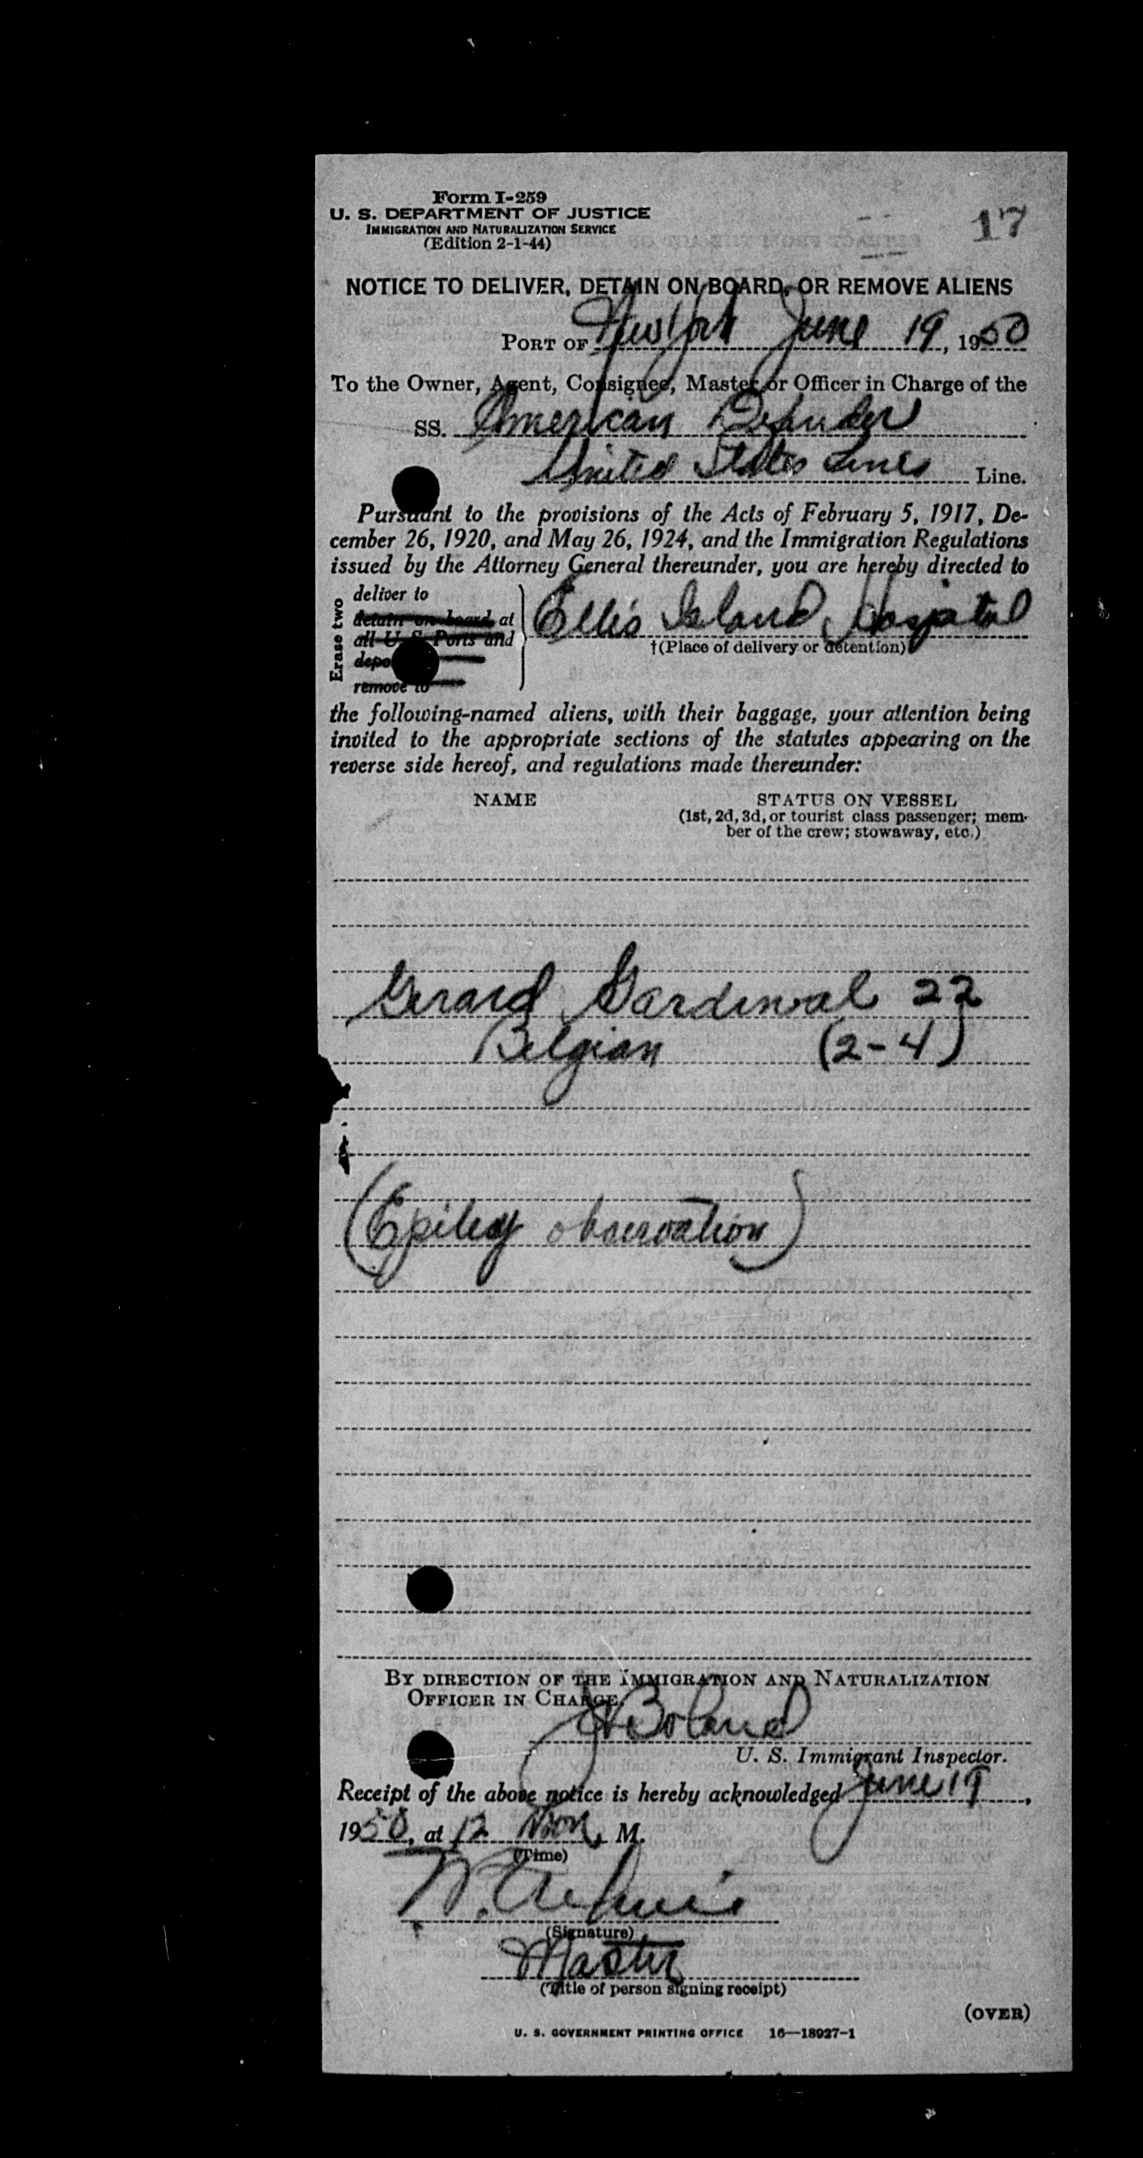 Form I-259
U. S. DEPARTMENT OF JUSTICE
IMMIGRATION AND NATURALIZATION SERVICE
(Edition 2-1-44)
17
NOTICE TO DELIVER, DETAIN ON BOARD, OR REMOVE ALIENS
PORT OF New York June 19, 1950
To the Owner, Agent, Consignee, Master or Officer in Charge of the
SS. American Defender
United States Lines Line.
Pursuant to the provisions of the Acts of February 5, 1917, De-
cember 26, 1920, and May 26, 1924, and the Immigration Regulations
issued by the Attorney General thereunder, you are hereby directed to
Erase two
deliver to
detain on board at
all U S Ports and
depo
remove to
Ellis Island Hospital
†(Place of delivery or detention)
the following-named aliens, with their baggage, your attention being
invited to the appropriate sections of the statutes appearing on the
reverse side hereof, and regulations made thereunder:
NAME STATUS ON VESSEL
(1st, 2d, 3d, or tourist class passenger; mem-
ber of the crew; stowaway, etc.)
Gerard Gardinal 22
Belgian (2-4)
(Epilepsy observation)
BY DIRECTION OF THE IMMIGRATION AND NATURALIZATION
OFFICER IN CHARGE.
Boland
U. S. Immigrant Inspector.
Receipt of the above notice is hereby acknowledged June 19,
1950, at 12 Noon, M.
(Time)
(Signature)
Master
(Title of person signing receipt)
(OVER)
U. S. GOVERNMENT PRINTING OFFICE 16—18927-1